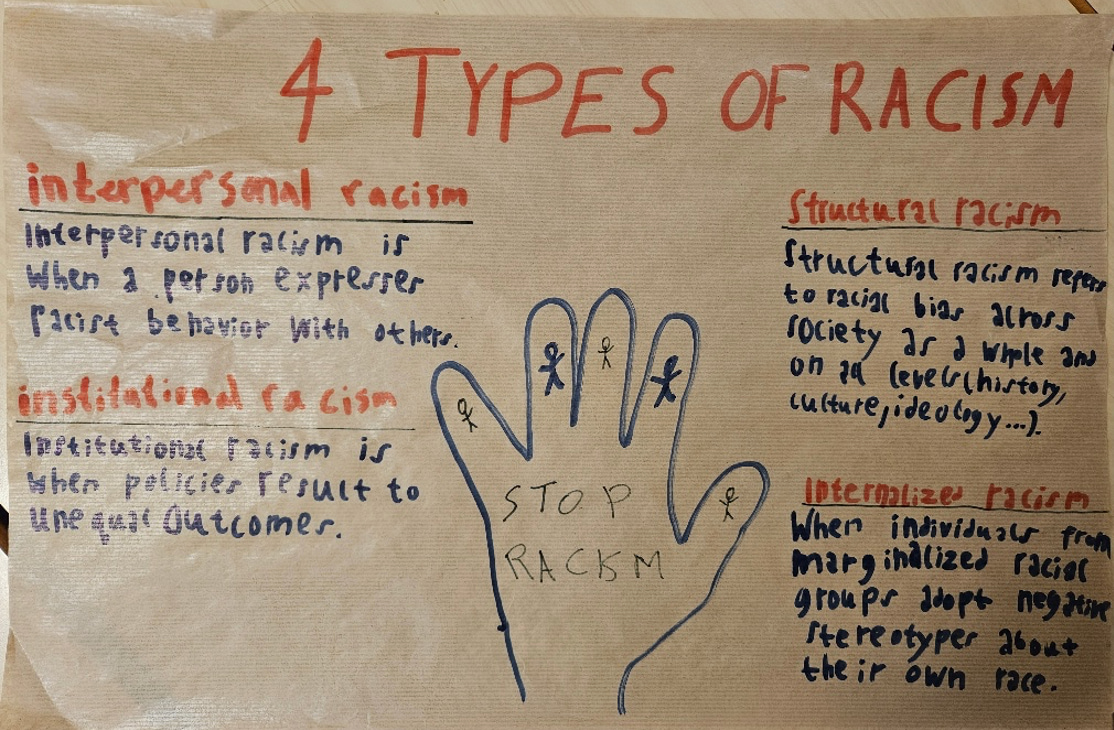 4 TYPES OF RACISM
interpersonal racism
Interpersonal racism is
when a person expresses
racist behavior with others.
institutional racism
Institutional racism is
when policies result to
unequal outcomes.
STOP
RACISM
Structural racism
Structural racism refers
to racial bias across
society as a whole and
on all levels(history,
culture,ideology...).
Internalized racism
When individuals from
marginalized racial
groups adopt negative
stereotypes about
their own race.